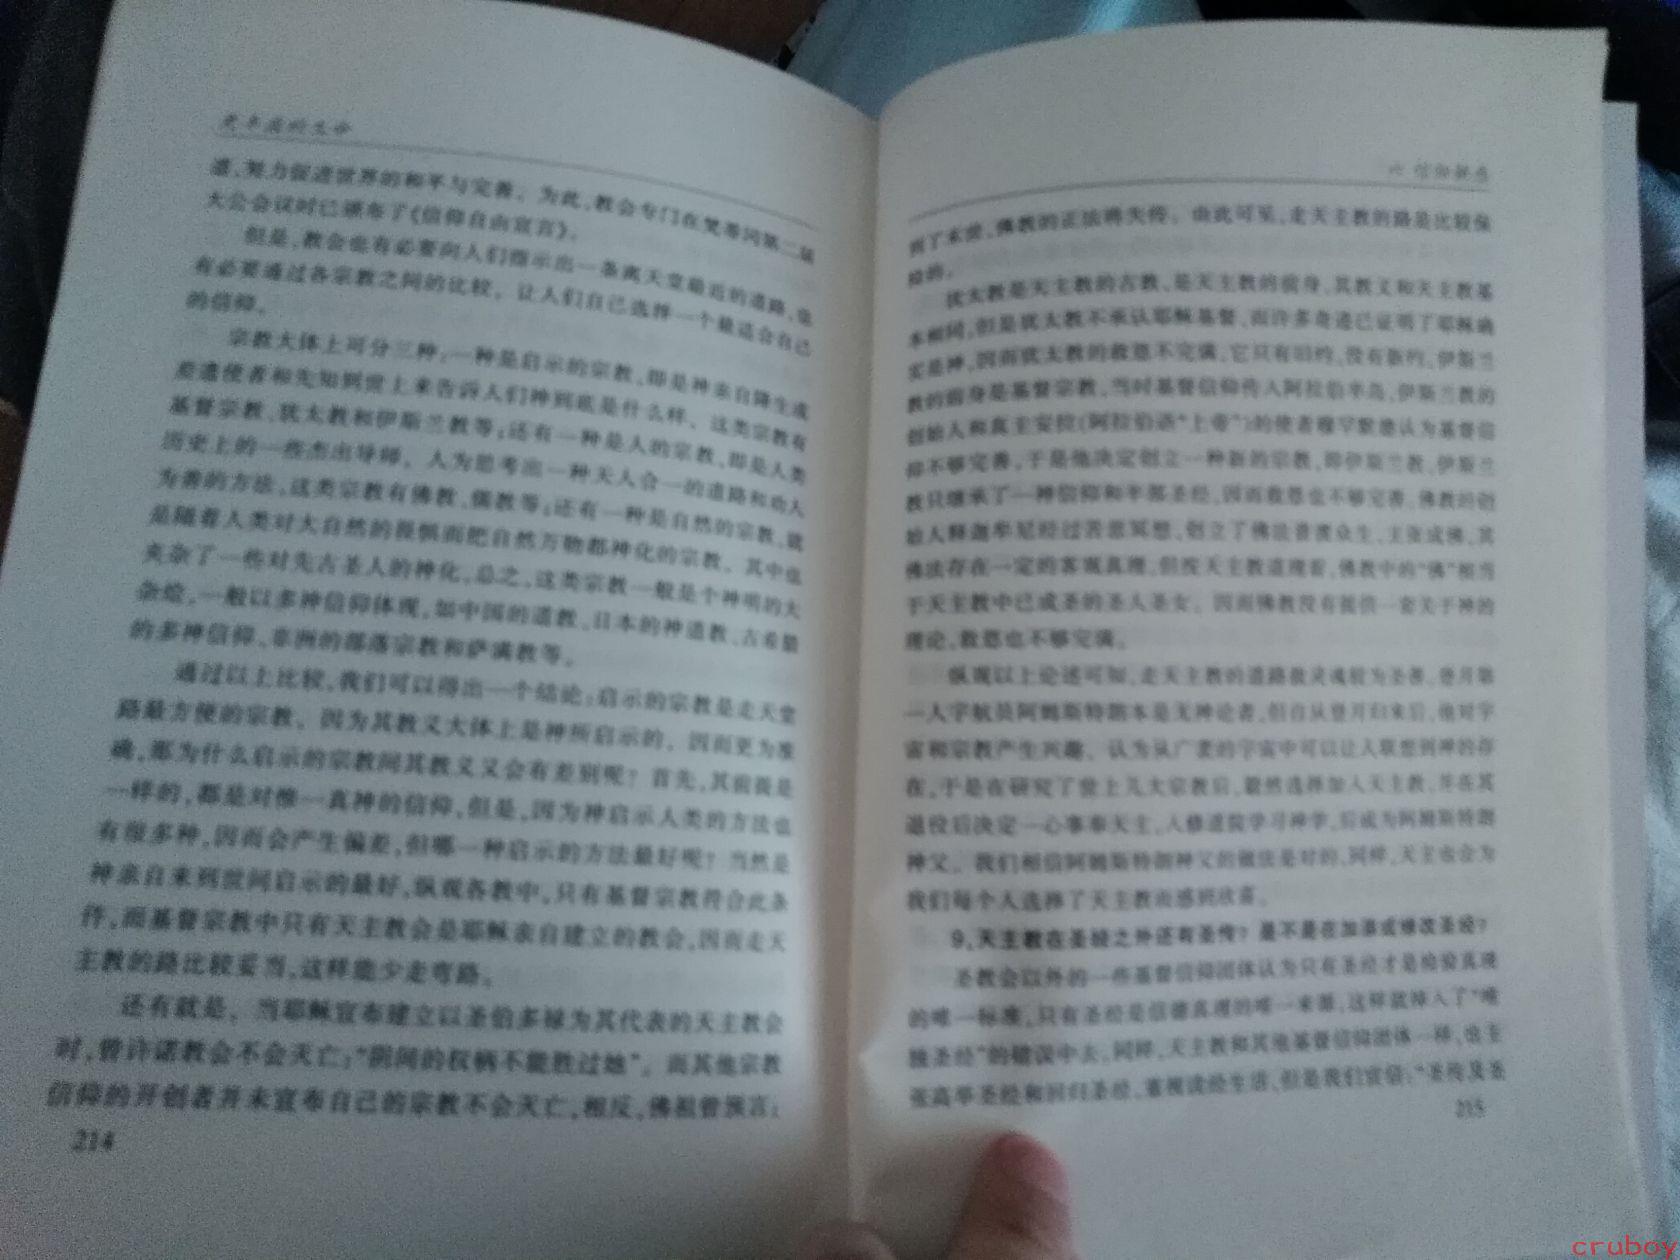 更丰富的生命
道，努力促进世界的和平与完善。为此，教会专门在梵蒂冈第二届
大公会议时已颁布了《信仰自由宣言》。
但是，教会也有必要向人们指示出一条离天堂最近的道路，也
有必要通过各宗教之间的比较，让人们自己选择一个最适合自己
的信仰。
宗教大体上可分三种：一种是启示的宗教，即是神亲自降生或
差遣使者和先知到世上来告诉人们神到底是什么样，这类宗教有
基督宗教、犹太教和伊斯兰教等；还有一种是人的宗教，即是人类
历史上的一些杰出导师，人为思考出一种天人合一的道路和劝人
为善的方法，这类宗教有佛教、儒教等；还有一种是自然的宗教，就
是随着人类对大自然的畏惧而把自然万物都神化的宗教，其中也
夹杂了一些对先古圣人的神化，总之，这类宗教一般是个神明的大
杂烩，一般以多神信仰体现，如中国的道教、日本的神道教、古希腊
的多神信仰、非洲的部落宗教和萨满教等。
通过以上比较，我们可以得出一个结论：启示的宗教是走天堂
路最方便的宗教，因为其教义大体上是神所启示的，因而更为准
确，那为什么启示的宗教间其教义又会有差别呢？首先，其前提是
一样的，都是对惟一真神的信仰，但是，因为神启示人类的方法也
有很多种，因而会产生偏差，但哪一种启示的方法最好呢？当然是
神亲自来到世间启示的最好，纵观各教中，只有基督宗教符合此条
件，而基督宗教中只有天主教会是耶稣亲自建立的教会，因而走天
主教的路比较妥当，这样能少走弯路。
还有就是，当耶稣宣布建立以圣伯多禄为其代表的天主教会
时，曾许诺教会不会灭亡：“阴间的权柄不能胜过她”。而其他宗教
信仰的开创者并未宣布自己的宗教不会灭亡，相反，佛祖曾预言：
214
六 信仰解惑
到了末世，佛教的正法将失传。由此可见，走天主教的路是比较保
险的。
犹太教是天主教的古教，是天主教的前身，其教义和天主教基
本相同，但是犹太教不承认耶稣基督，而许多奇迹已证明了耶稣确
实是神，因而犹太教的救恩不完满，它只有旧约，没有新约。伊斯兰
教的前身是基督宗教，当时基督信仰传入阿拉伯半岛，伊斯兰教的
创始人和真主安拉(阿拉伯语“上帝”)的使者穆罕默德认为基督信
仰不够完善，于是他决定创立一种新的宗教，即伊斯兰教，伊斯兰
教只继承了一神信仰和半部圣经，因而救恩也不够完善。佛教的创
始人释迦牟尼经过苦思冥想，创立了佛法普渡众生，主张成佛，其
佛法存在一定的客观真理，但按天主教道理看，佛教中的“佛”相当
于天主教中已成圣的圣人圣女。因而佛教没有提供一套关于神的
理论，救恩也不够完满。
纵观以上论述可知，走天主教的道路救灵魂较为圣善，登月第
一人宇航员阿姆斯特朗本是无神论者，但自从登月归来后，他对宇
宙和宗教产生兴趣，认为从广袤的宇宙中可以让人联想到神的存
在，于是在研究了世上几大宗教后，毅然选择加入天主教，并在其
退役后决定一心事奉天主，入修道院学习神学，后成为阿姆斯特朗
神父。我们相信阿姆斯特朗神父的做法是对的，同样，天主也会为
我们每个人选择了天主教而感到欣喜。
9、天主教在圣经之外还有圣传？是不是在加添或修改圣经？
圣教会以外的一些基督信仰团体认为只有圣经才是检验真理
的唯一标准，只有圣经是信德真理的唯一来源，这样就掉入了“唯
独圣经”的错误中去。同样，天主教和其他基督信仰团体一样，也主
张高举圣经和回归圣经，重视读经生活，但是我们宣信：“圣传及圣
215
cruboy